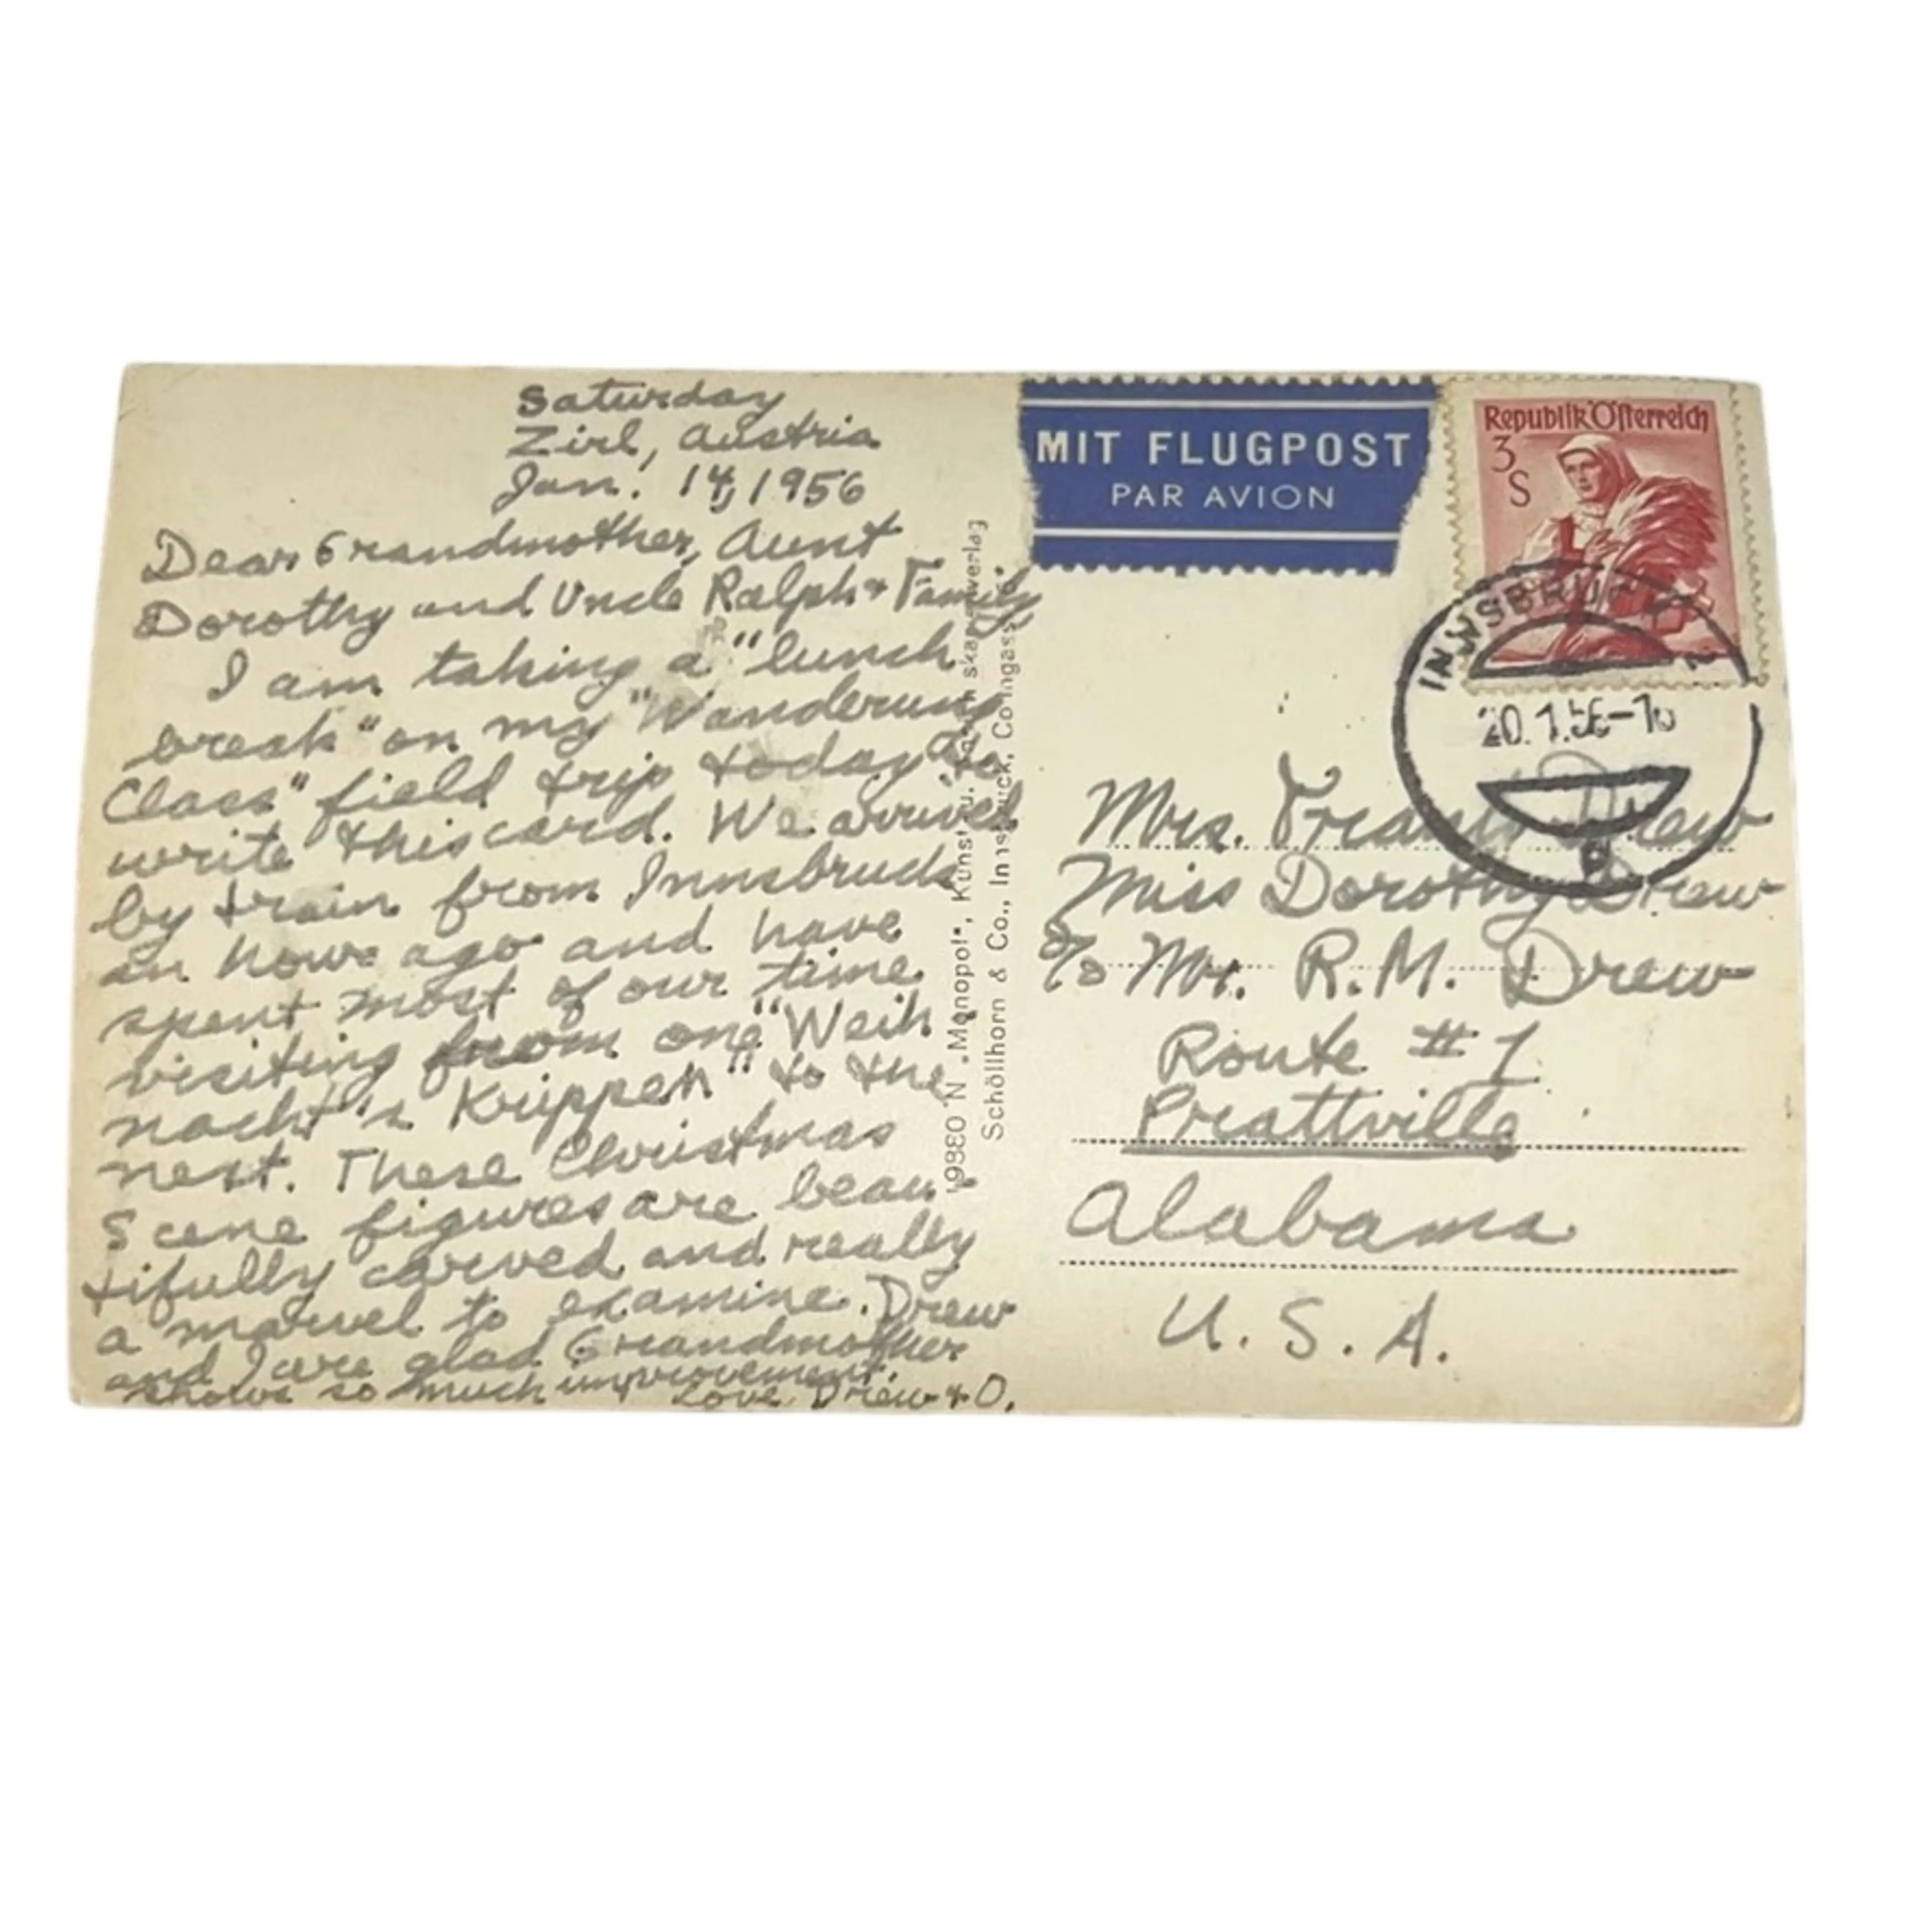 Saturday
Zirl, Austria
Jan. 14, 1956
Dear Grandmother, Aunt
Dorothy and Uncle Ralph & Family
I am taking a "lunch
break" on my "Wanderung
Class" field trip today to
write this card. We arrived
by train from Innsbruck
an hour ago and have
spent most of our time
visiting from one "Weih
nacht's Krippen" to the
next. These Christmas
Scene figures are beau-
tifully carved and really
a marvel to examine. Drew
and I are glad Grandmother
shows so much improvement.
Love Drew & O.
19880 N „Monopol", Kunst u.
Schöllhorn & Co., Innsbruck,
MIT FLUGPOST
PAR AVION
Republik Österreich
3
S
INNSBRUCK 2
20.1.56-
Mrs. Drew
Miss Dorothy Drew
c/o Mr. R.M. Drew
Route # 1
Prattville
Alabama
U.S.A.